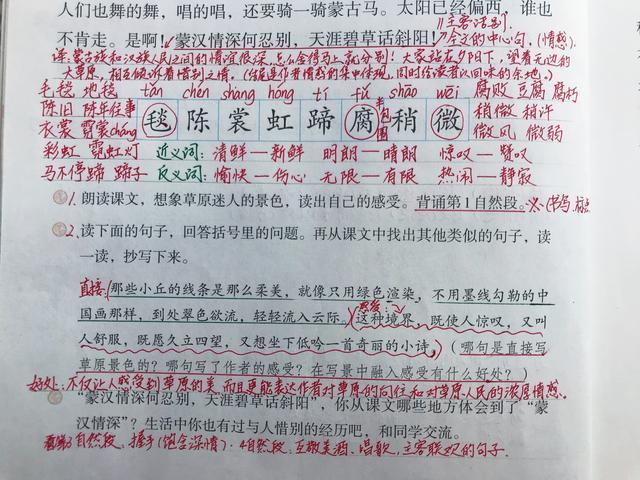 人们也舞的舞，唱的唱，还要骑一骑蒙古马。太阳已经偏西，谁也
(主客话别)
不肯走。是啊！蒙汉情深何忍别，天涯碧草话斜阳！全文的中心句.(情感)
蒙古族和汉族人民之间的情谊很深,怎么舍得马上就分别！大家站在夕阳下,望着无边的
大草原,相互倾诉着惜别之情。(结尾是作者情感的集中体现,同时给读者以回味的余地。)
毛毯 地毯 tǎn chén shang hóng tí fǔ shāo wēi 腐败 豆腐 腐朽
陈旧 陈年往事 毯 陈 裳 虹 蹄 腐 半包围 稍 微 稍微 稍许
衣裳 霓裳cháng 微风 微弱
彩虹 霓虹灯 近义词：清鲜—新鲜 明朗—晴朗 惊叹—赞叹
马不停蹄 蹄子 反义词：愉快—伤心 无限—有限 热闹—静寂
1. 朗读课文，想象草原迷人的景色，读出自己的感受。背诵第1自然段。
2. 读下面的句子，回答括号里的问题。再从课文中找出其他类似的句子，读
一读，抄写下来。
直接：那些小丘的线条是那么柔美，就像只用绿色渲染，不用墨线勾勒的中
国画那样，到处翠色欲流，轻轻流入云际。感受：这种境界，既使人惊叹，又叫
人舒服，既愿久立四望，又想坐下低吟一首奇丽的小诗。（哪句是直接写
草原景色的？哪句写了作者的感受？在写景中融入感受有什么好处？）
好处：不仅让人感受到草原的美,而且更能表达作者对草原的向往和对草原人民的浓厚情感。
“蒙汉情深何忍别，天涯碧草话斜阳”，你从课文哪些地方体会到了“蒙
汉情深”？生活中你也有过与人惜别的经历吧，和同学交流。
自然段,握手(饱含深情)：4自然段,互敬美酒、唱歌,主客联欢的句子.